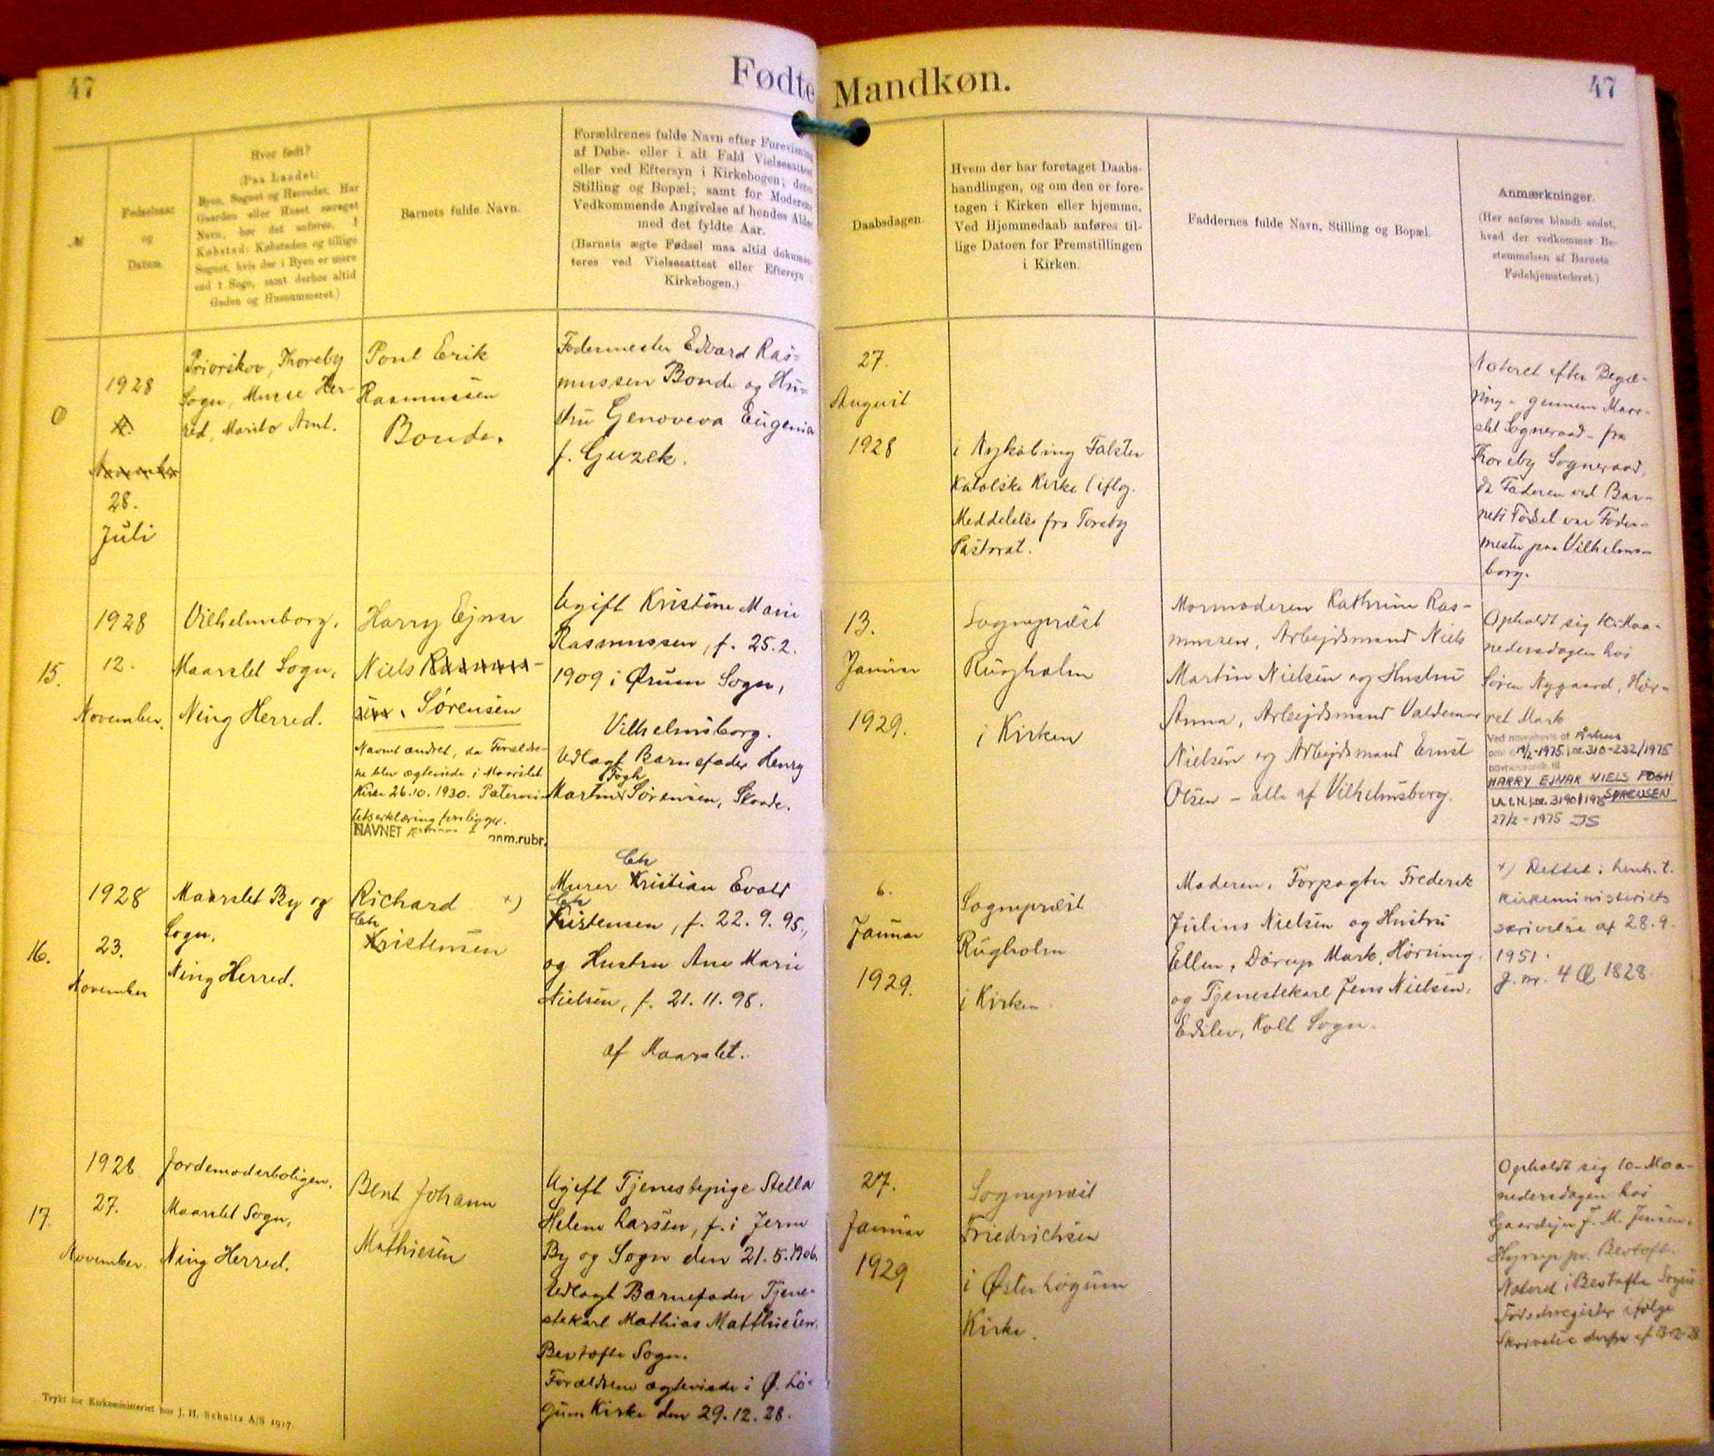 47
Fødte
Mandkøn.
47
№
Fødselsaar
og
Datum.
Hvor født?
(Paa Landet:
Byen, Sognet og Herredet. Har
Gaarden eller Huset særeget
Navn, bør det anføres. I
Købstad: Købstaden og tillige
Sognet, hvis der i Byen er mere
end 1 Sogn, samt derhos altid
Gaden og Husnummeret.)
Barnets fulde Navn.
Forældrenes fulde Navn efter Forevisning
af Døbe- eller i alt Fald Vielsesattest
eller ved Eftersyn i Kirkebogen; deres
Stilling og Bopæl; samt for Moderens
Vedkommende Angivelse af hendes Alder
med det fyldte Aar.
(Barnets ægte Fødsel maa altid dokumen-
teres ved Vielsesattest eller Eftersyn i
Kirkebogen.)
Daabsdagen.
Hvem der har foretaget Daabs-
handlingen, og om den er fore-
tagen i Kirken eller hjemme.
Ved Hjemmedaab anføres til-
lige Datoen for Fremstillingen
i Kirken.
Faddernes fulde Navn, Stilling og Bopæl.
Anmærkninger.
(Her anføres blandt andet,
hvad der vedkommer Be-
stemmelsen af Barnets
Fødehjemstedsret.)
0
1928
4.
November
28.
Juli
Priorskov, Thoreby
Sogn, Musse Her-
red, Maribo Amt.
Poul Erik
Rasmussen
Bonde.
Fodermester Edvard Ras-
mussen Bonde og Hu-
stru Genoveva Eugenia
f. Guzek.
27.
August
1928
i Nykøbing Falster
Katolske Kirke (iflg.
Meddelelse fra Toreby
Pastorat.
Noteret efter Begæ-
ring - gennem Maar-
slet Sogneraad - fra
Thoreby Sogneraad,
da Faderen ved Bar-
nets Fødsel var Foder-
mester paa Vilhelms-
borg.
15.
1928
12.
November.
Vilhelmsborg,
Maarslet Sogn,
Ning Herred.
Harry Ejnar
Niels Rasmus-
sen. Sørensen
Navnet ændret, da Forældre-
ne blev ægteviede i Maarslet
Kirke 26.10.1930. Paterni-
tetserklæring foreligger.
NAVNET
anm.rubr.
Ugift Kristine Marie
Rasmussen, f. 25.2.
1909 i Ørum Sogn,
Vilhelmsborg.
Udlagt Barnefader Henry
Fogh
Martin Sørensen, Skaade.
13.
Januar
1929.
Sognepræst
Rugholm
i Kirken
Mormoderen Kathrine Ras-
mussen, Arbejdsmand Niels
Martin Nielsen og Hustru
Anna, Arbejdsmand Valdemar
Nielsen og Arbejdsmand Ernst
Olsen - alle af Vilhelmsborg.
Opholdt sig 10-Maa-
nedersdagen hos
Søren Nygaard, Hør-
ret Mark
Ved navnebevis af Århus
19/2-1975 J.nr. 310-232/1975
HARRY EJNAR NIELS FOGH
SØRENSEN
27/2-1975 JS
16.
1928
23.
November
Maarslet By og
Sogn,
Ning Herred.
Richard x)
Ch
Kristensen
Ch
Murer Kristian Evald
Ch
Kristensen, f. 22.9.95,
og Hustru Ane Marie
Nielsen, f. 21.11.98.
af Maarslet.
6.
Januar
1929.
Sognepræst
Rugholm
i Kirken
Moderen, Forpagter Frederik
Julius Nielsen og Hustru
Ellen, Dørup Mark, Hørning.
og Tjenestekarl Jens Nielsen,
Edslev, Kolt Sogn.
x) Rettet i henh. t.
Kirkeministeriets
skrivelse af 28.9.
1951.
J. nr. 4 Æ 1828
17.
1928
27.
November
Jordemoderboligen,
Maarslet Sogn,
Ning Herred.
Bent Johann
Mathiesen
Ugift Tjenestepige Stella
Helene Larsen, f. i Jerne
By og Sogn den 21.5.1906.
Udlagt Barnefader Tjene-
stekarl Mathias Matthiesen,
Bevtofte Sogn.
Forældrene ægteviede i Ø. Lø-
gum Kirke den 29.12.28.
27.
Januar
1929
Sognepræst
Friedrichsen
i Øster Løgum
Kirke.
Opholdt sig 10-Maa-
nedersdagen hos
Gaardejer J. M. Jensen,
Hyrup pr. Bevtoft.
Noteret i Bevtofte Sogns
Fødselsregister ifølge
Skrivelse derfra af
Trykt for Kirkeministeriet hos J. H. Schultz A/S 1917.